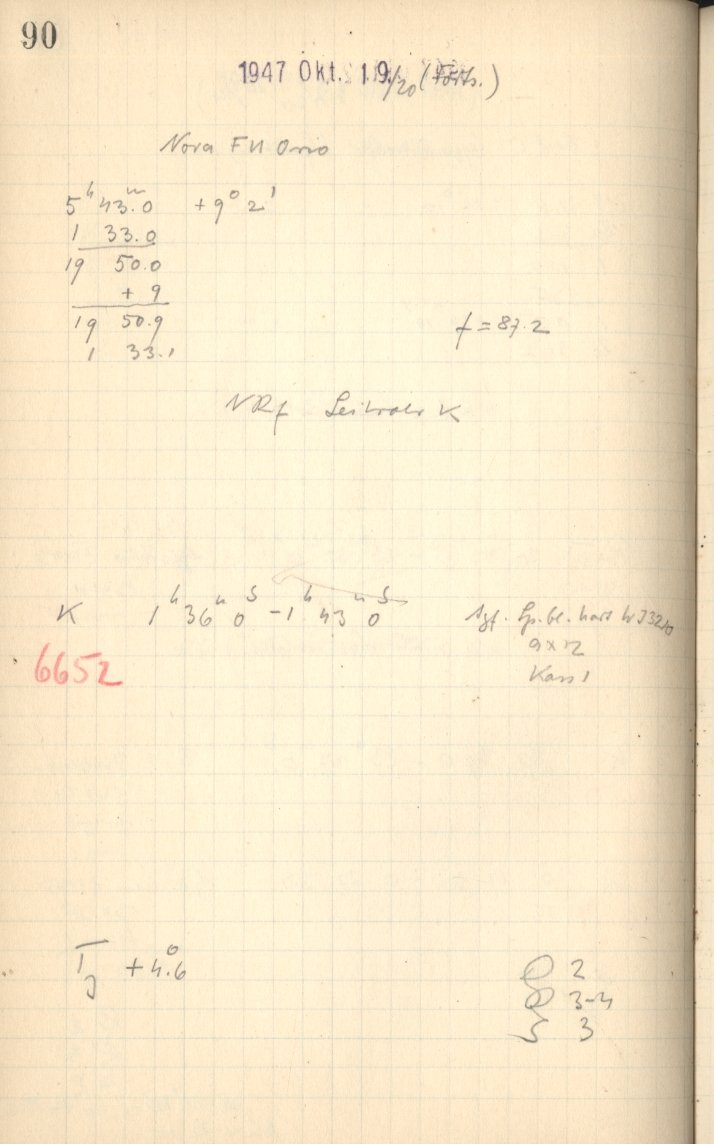 90
1947 Okt. 19./20 (Forts.)
Nova FU Orio
5ʰ 43ᵐ.0 +9° 2'
1 33.0
19 50.0
+ 9
19 50.9
1 33.1
f = 87.2
NRf Leitrohr K
K 1ʰ 36ᵐ 0ˢ - 1ʰ 43ᵐ 0ˢ Agf. Sp. bl. hart
6652 9x12
Kass 1
T +4°.6
2
3-4
3